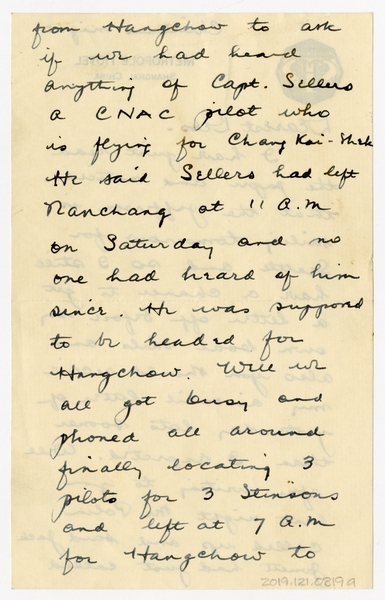 from Hangchow to ask
if we had heard
anything of Capt. Sellers
a CNAC pilot who
is flying for Chang Kai-Shek
He said Sellers had left
Nanchang at 11 A.M
on Saturday and no
one had heard of him
since. He was supposed
to be headed for
Hangchow. Will we
all got busy and
phoned all around
finally locating 3
pilots for 3 Stinsons
and left at 7 A.M
for Hangchow to
2019.121.0819a